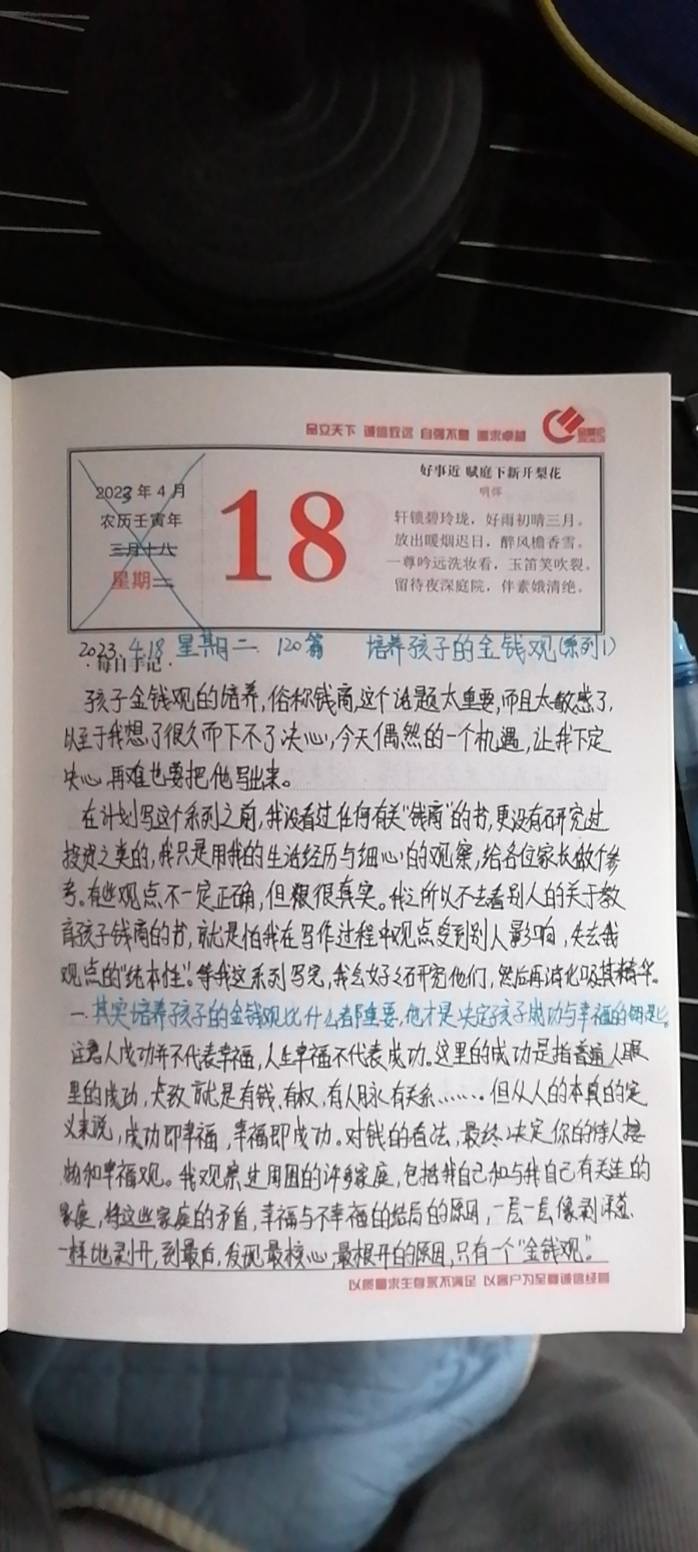 品立天下 诚信致远 自强不息 追求卓越
2023年4月
农历壬寅年
三月十八
星期二
18
好事近 赋庭下新开梨花
明辉
轩锁碧玲珑，好雨初晴三月。
放出暖烟迟日，醉风檐香雪。
一尊吟远洗妆看，玉笛笑吹裂。
留待夜深庭院，伴素娥清绝。
2023.4.18 星期二. 120篇 培养孩子的金钱观(系列1)
·每日手记·
孩子金钱观的培养，俗称钱商，这个话题太重要，而且太敏感了，
以至于我想了很久而下不了决心，今天偶然的一个机遇，让我下定
决心，再难也要把他写出来。
在计划写这个系列之前，我没看过任何有关“钱商”的书，更没有研究过
投资之类的，我只是用我的生活经历与细心的观察，给各位家长做个参
考。有些观点不一定正确，但很真实。我之所以不去看别人的关于教
育孩子钱商的书，就是怕我在写作过程中观点受到别人影响，失去我
观点的“纯本性”。等我这系列写完，我会好好研究他们，然后再消化吸其精华。
一.其实培养孩子的金钱观比什么都重要，他才是决定孩子成功与幸福的钥匙。
注意人成功并不代表幸福，人生幸福不代表成功。这里的成功是指普通人眼
里的成功，大致就是有钱、有权，有人脉，有关系……。但从人的本真的定
义来说，成功即幸福，幸福即成功。对钱的看法，最终决定你的待人接
物和幸福观。我观察过周围的许多家庭，包括我自己和与我自己有关连的
家庭，将这些家庭的矛盾，幸福与不幸福的结局的原因，一层一层像剥洋葱
一样地剥开，到最后，发现最核心，最根本的原因，只有一个“金钱观”。
以质量求生存永不满足 以客户为至尊诚信经营